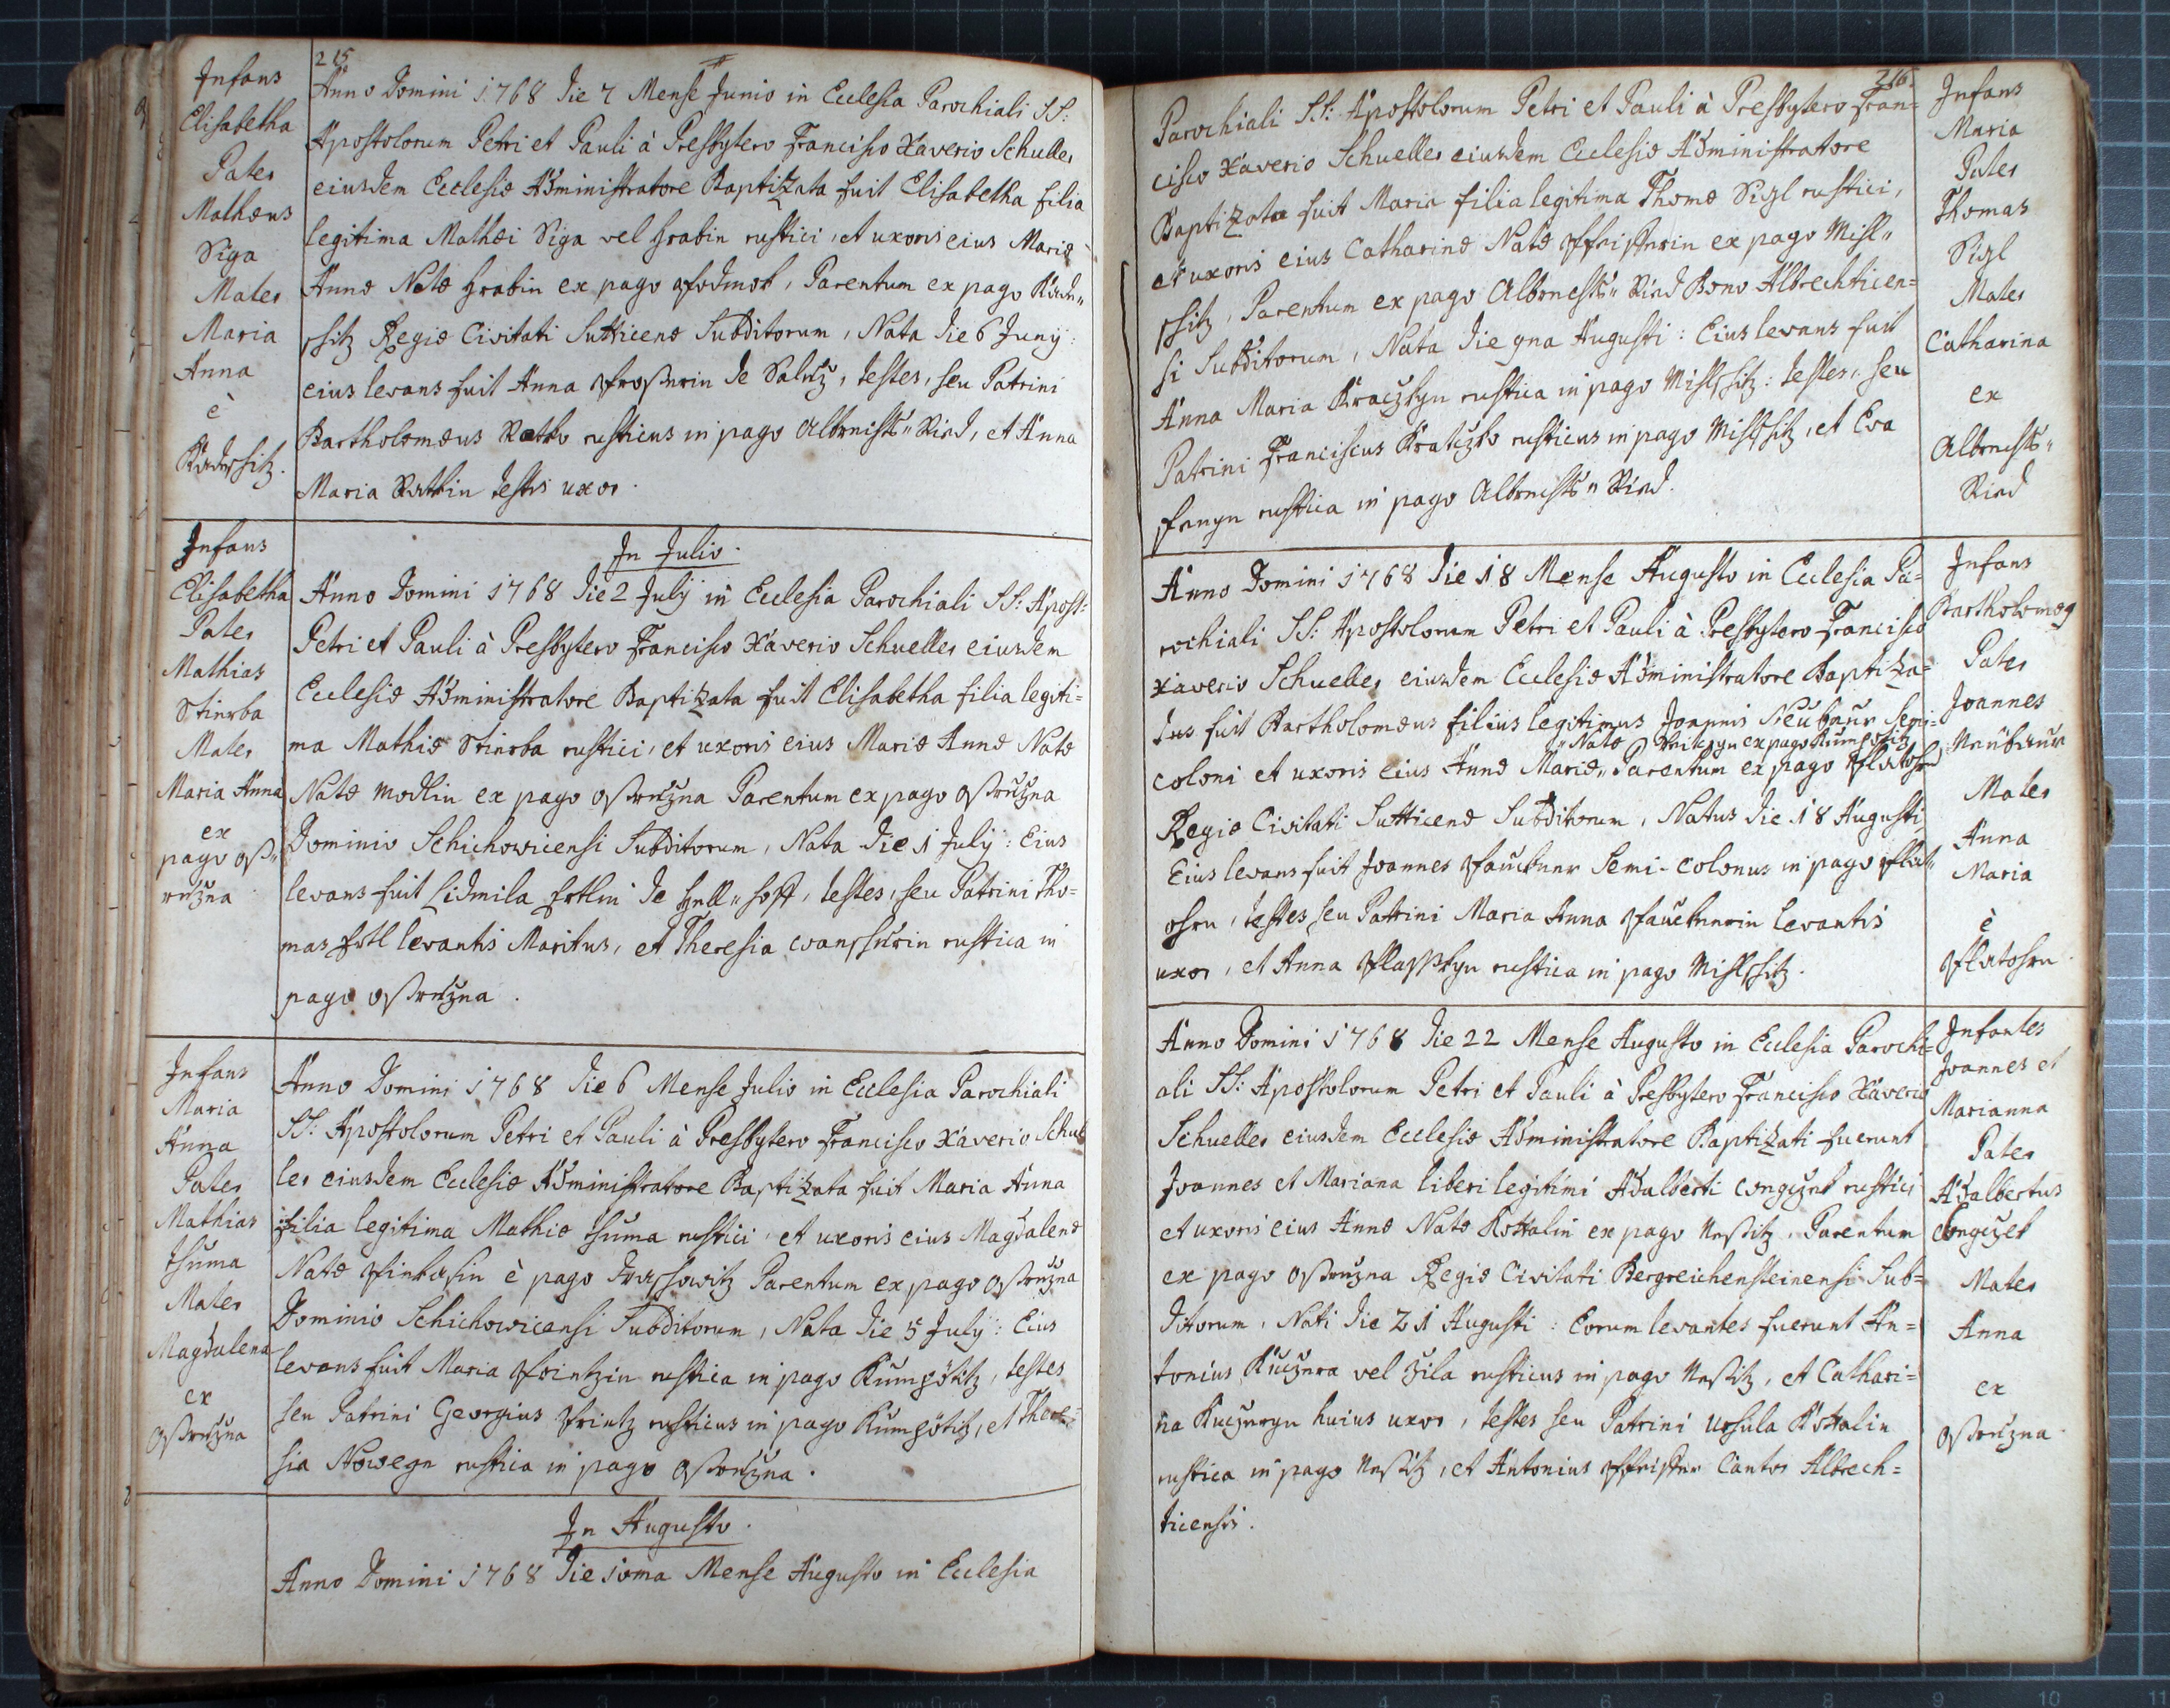 215
Infans
Elisabetha
Pater
Mathæus
Siga
Mater
Maria
Anna
è
Anno Domini 1768 die 7 Mense Junio in Ecclesia Parochiali SS:
Apostolorum Petri et Pauli à Presbytero Francisco Xaverio Schueller
eiusdem Ecclesiæ Administratore Baptizata fuit Elisabetha filia
legitima Mathæi Siga vel Grabin rustici, et uxoris eius Mariæ
Annæ Natæ Grabin ex pago, Parentum ex pago
Regiæ Civitati Sutticenæ Subditorum, Nata die 6 Junij:
eius levans fuit Anna de, testes, seu Patrini
Bartholomæus Ratko rusticus in pago Albrechts" Ried, et Anna
Maria Ratkin testis uxor.
Infans
Elisabetha
Pater
Mathias
Stinrba
Mater
Maria Anna
ex
pago Oß"
ružna
In Julio.
Anno Domini 1768 die 2 July in Ecclesia Parochiali SS: Apost:
Petri et Pauli à Presbytero Francisco Xaverio Schueller eiusdem
Ecclesiæ Administratore Baptizata fuit Elisabetha filia legiti=
ma Mathiæ Stinrba rustici, et uxoris eius Mariæ Annæ Natæ
Natæ Modlin ex pago Oßružna Parentum ex pago Oßružna
Dominio Schichowicensi Subditorum, Nata die 1 July: Eius
levans fuit Lidmila de, testes, seu Patrini Tho=
mas levantis Maritus, et Theresia rustica in
pago Oßružna.
Infans
Maria
Anna
Pater
Mathias
Thuma
Mater
Magdalena
ex
Oßružna
Anno Domini 1768 die 6 Mense Julio in Ecclesia Parochiali
SS: Apostolorum Petri et Pauli à Presbytero Francisco Xaverio Schuel
ler eiusdem Ecclesiæ Administratore Baptizata fuit Maria Anna
filia legitima Mathiæ Thuma rustici, et uxoris eius Magdalenæ
Natæ è pago Parentum ex pago Oßružna
Dominio Schichowicensi Subditorum, Nata die 5 July: Eius
levans fuit Maria rustica in pago Kumpötitz, testes
seu Patrini Georgius rusticus in pago Kumpötitz, et There=
sia rustica in pago Oßružna.
In Augusto.
Anno Domini 1768 die 10ma Mense Augusto in Ecclesia
216
Parochiali SS: Apostolorum Petri et Pauli à Presbytero Fran=
cisco Xaverio Schueller eiusdem Ecclesiæ Administratore
Baptizata fuit Maria filia legitima Thomæ Sigl rustici,
et uxoris eius Catharinæ Natæ ex pago Misl"
schitz, Parentum ex pago Albrechts" Ried Bono Albrechticen=
si Subditorum, Nata die 9na Augusti: Eius levans fuit
Anna Maria rustica in pago Mislschitz: testes, seu
Patrini Franciscus rusticus in pago Mislschitz, et Eva
rustica in pago Albrechts" Ried.
Infans
Maria
Pater
Thomas
Sigl
Mater
Catharina
ex
Albrechts"
Ried
Anno Domini 1768 die 18 Mense Augusto in Ecclesia Pa=
rochiali SS: Apostolorum Petri et Pauli à Presbytero Francisco
Xaverio Schueller eiusdem Ecclesiæ Administratore Baptiza=
tus fuit Bartholomæus filius legitimus Joannis Neubaur Semi=
"Natæ ex pago Kumpötitz
coloni et uxoris eius Annæ Mariæ," Parentum ex pago
Regiæ Civitati Sutticenæ Subditorum, Natus die 18 Augusti
Eius levans fuit Joannes Semi-colonus in pago
testes seu Patrini Maria Anna levantis
uxor, et Anna rustica in pago Mislschitz.
Infans
Bartholomæ9
Pater
Joannes
Neubaur
Mater
Anna
Maria
è
Anno Domini 1768 die 22 Mense Augusto in Ecclesia Parochi=
ali SS: Apostolorum Petri et Pauli à Presbytero Francisco Xaverio
Schueller eiusdem Ecclesiæ Administratore Baptizati fuerunt
Joannes et Mariana liberi legitimi Adalberti rustici
et uxoris eius Annæ Natæ Kottalin ex pago Neßitz, Parentum
ex pago Oßružna Regiæ Civitati Bergreichensteinensi Sub=
ditorum, Nati die 21 Augusti: Eorum levantes fuerunt An=
tonius Kučzera vel Zila rusticus in pago Neßitz, et Cathari=
na huius uxor, testes seu Patrini Ursula Kottalin
rustica in pago Neßitz, et Antonius Cantor Albrech=
ticensis.
Infantes
Joannes et
Marianna
Pater
Adalbertus
Mater
Anna
ex
Oßružna